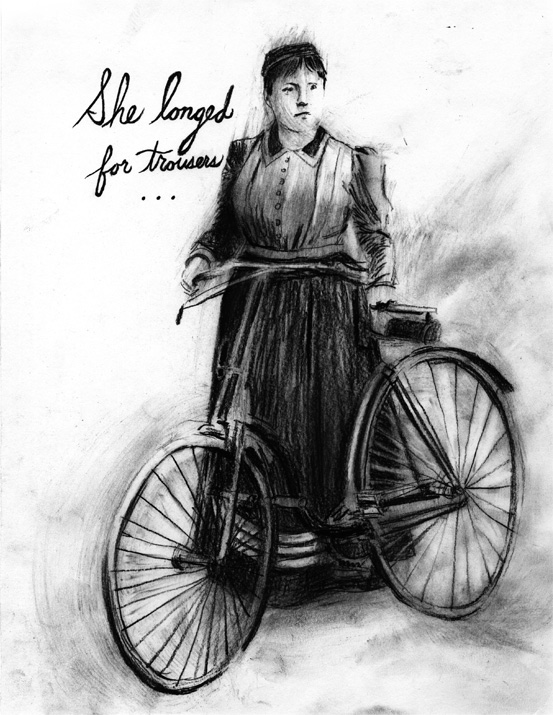 She longed
for trousers
...